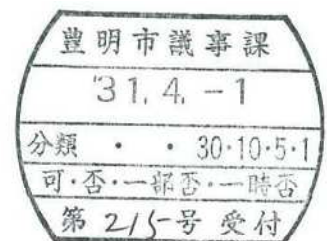 豊明市議事課
'31.4.-1
分類 ・ ・ 30・10・5・1
可・否・一部否・一時否
第215号 受付